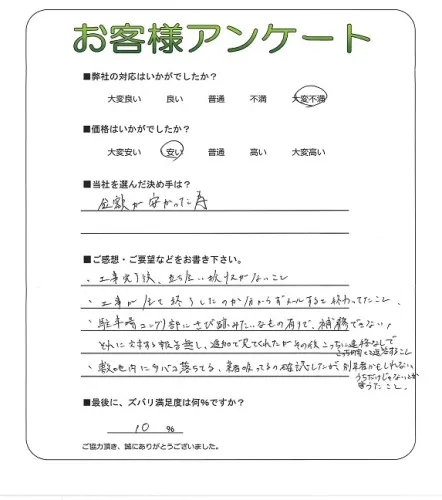 お客様アンケート
■弊社の対応はいかがでしたか?
大変良い 良い 普通 不満 大変不満
■価格はいかがでしたか?
大変安い 安い 普通 高い 大変高い
■当社を選んだ決め手は?
金額が安かった事
■ご感想・ご要望などをお書き下さい。
・工事完了後、立ち会い がないこと
・工事が 終了したのか ると終わってたこと、
・駐車場コンクリ部にさび跡みたいなもの有りで、補 できない、
それに対する報告無し、追加で見てくれたがその後こっちに連絡なしで
こっちから すること
・敷地内にタバコ落ちてる、 吸ってるの確認したが、別業者かもしれない、
うちだけじゃないとか
言うたこと。
■最後に、ズバリ満足度は何%ですか?
10 %
ご協力頂き、誠にありがとうございました。